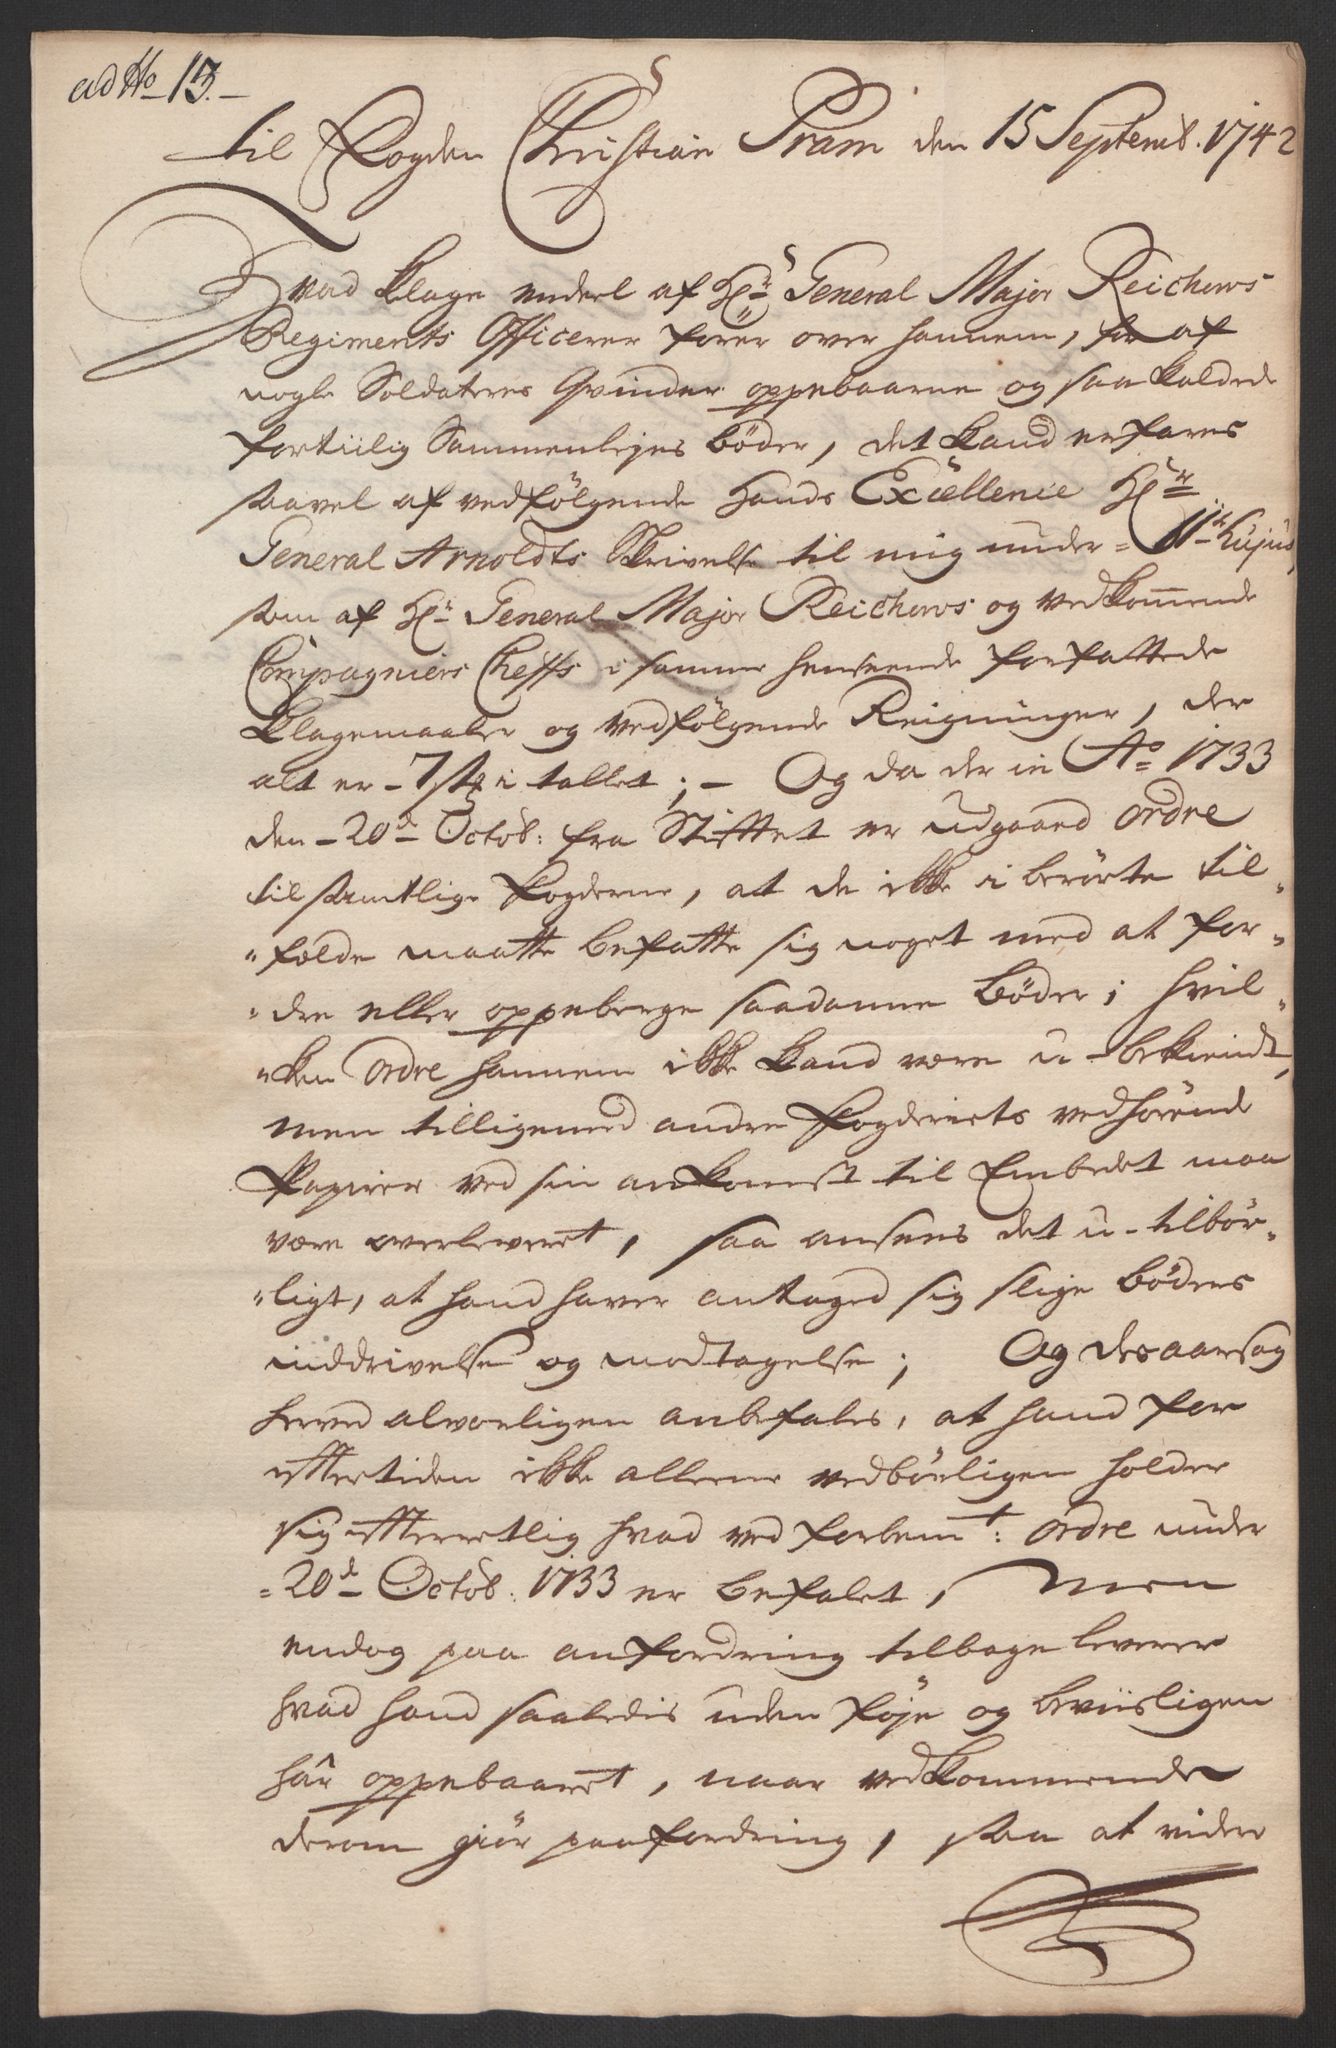 ad No 13.
Til Fogden Christian Pram den 15 Septemb. 1742
Hvad Klage endeel af Hr General Major Reichows
Regiments Officerer fører over hannem, for af
nogle Soldaters Qvinder oppebaarne og saa kaldede
fortiilig Sammenlejes bøder, det kand erfares
saavel af vedfølgende hands Excellence Hr
General Arnoldts Skrivelse til mig under 11te hujus,
som af Hr General Major Reichows og vedkommende
Compagniers Cheffs i samme henseende forfattede
Klagemaaler og vedfølgende Reigninger, der
alt er 7 st i tallet; – Og da der in Ao 1733
den 20d Octob: fra Stiftet er udgaaed Ordre
til samtlige Fogderne, at de ikke i berørte til-
-fælde maatte befatte sig noget med at for-
-dre eller oppeberge saadanne bøder; hvil-
-ken Ordre hannem ikke kand være u-bekiendt,
men tilligemed andre Fogderiets vedhørende
Papirer ved sin ankomst til Embedet maa
være overleveret, saa ansees det u-tilbør-
-ligt, at hand haver antaged sig slige bøders
inddrivelse og modtagelse; Og desaarsag
herved alvorligen anbefales, at hand for
efftertiden ikke alleene vedbørligen holder
sig effterretlig hvad ved forbemt: Ordre under
20d Octob: 1733 er befalet, men
endog paa anfordring tilbage leverer
hvad hand saaledis uden føje og beviisligen
har oppebaaret, naar vedkommende
derom giør paafordring, saa at vider